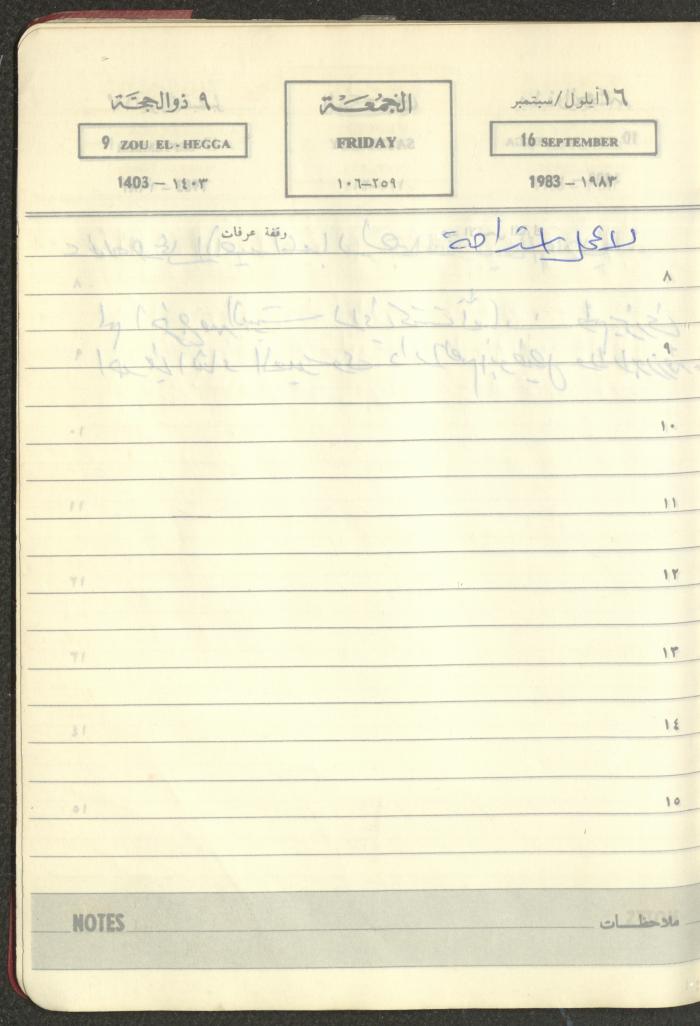 ١٦ أيلول/سبتمبر الجمعة ٩ ذوالحجة
16 SEPTEMBER FRIDAY 9 ZOU EL-HEGGA
1983 — ١٩٨٣ ١٠٦—٢٥٩ 1403 — ١٤٠٣
لا عمل استراحة وقفة عرفات
٨
٩
١٠
١١
١٢
١٣
١٤
١٥
ملاحظات NOTES